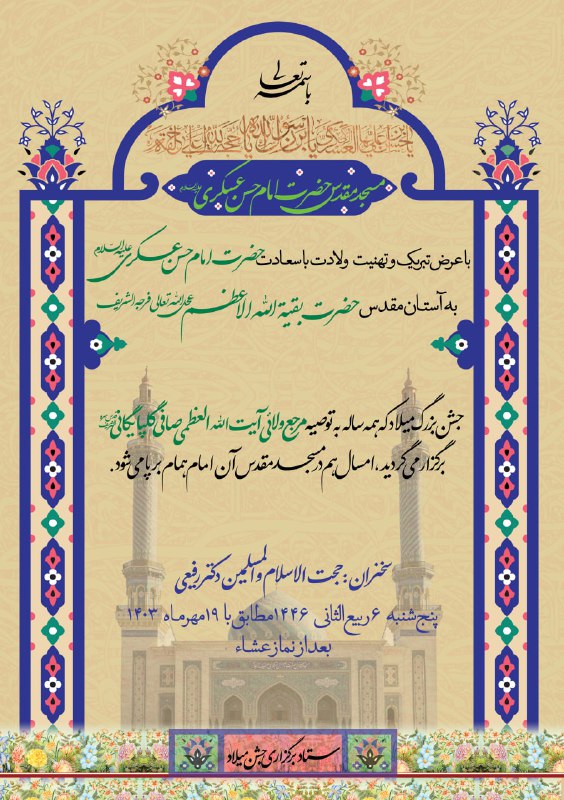 باسمه تعالی
مسجد مقدس حضرت امام حسن عسکری علیه السلام
با عرض تبریک و تهنیت ولادت با سعادت حضرت امام حسن عسکری علیه السلام
به آستان مقدس حضرت بقیة الله الاعظم عجل الله تعالی فرجه الشریف
جشن بزرگ میلاد که همه ساله به توصیه مرجع ولائی آیت الله العظمی صافی گلپایگانی قدس سره
برگزار می گردید، امسال هم در مسجد مقدس آن امام همام بر پا می شود.
سخنران: حجت الاسلام والمسلمین دکتر رفیعی
پنج شنبه ۶ ربیع الثانی ۱۴۴۶ مطابق با ۱۹ مهر ماه ۱۴۰۳
بعد از نماز عشاء
ستاد برگزاری جشن میلاد